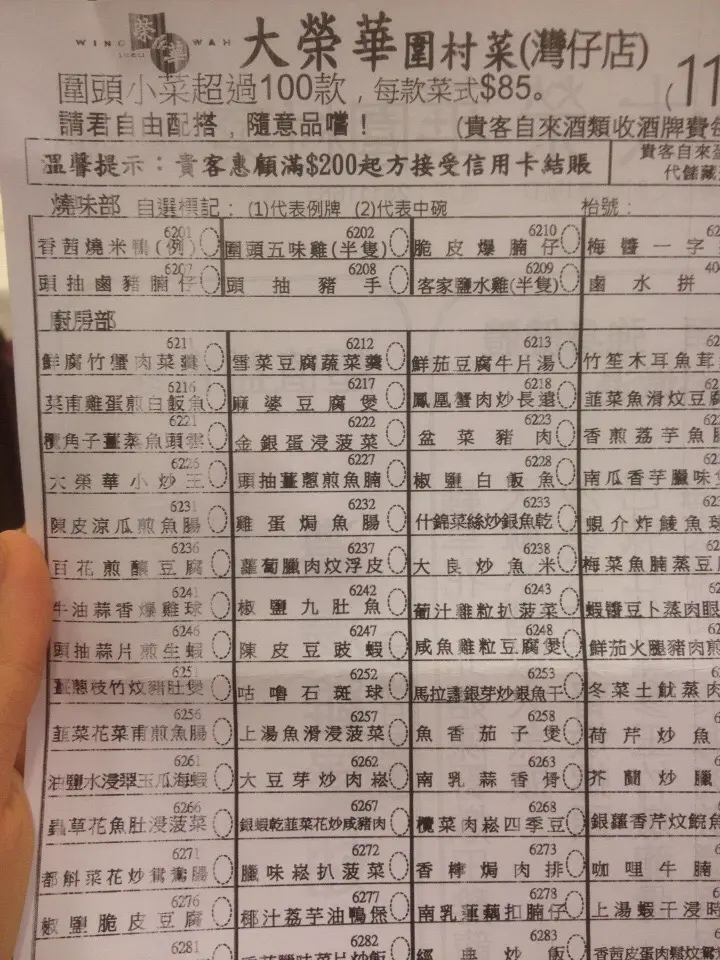 榮華
WING WAH
大榮華圍村菜(灣仔店)
圍頭小菜超過100款，每款菜式$85。
(11
請君自由配搭，隨意品嚐！
(貴客自來酒類收酒牌費每
溫馨提示：貴客惠顧滿$200起方接受信用卡結賬
貴客自來
代儲藏
燒味部 自選標記：(1)代表例牌 (2)代表中碗 枱號：
6201 6202 6210 62
香茜燒米鴨(例) 圍頭五味雞(半隻) 脆皮爆腩仔 梅醬一字
6207 6208 6209 40
頭抽鹵豬腩仔 頭抽豬手 客家鹽水雞(半隻) 鹵水拼
廚房部
6211 6212 6213 62
鮮腐竹蟹肉菜羹 雪菜豆腐蔬菜羹 鮮茄豆腐牛片湯 竹笙木耳魚茸
6216 6217 6218 62
菜甫雞蛋煎白飯魚 麻婆豆腐煲 鳳凰蟹肉炒長遠 韮菜魚滑炆豆腐
6221 6222 6223 62
欖角子薑蒸魚頭雲 金銀蛋浸菠菜 盆菜豬肉 香煎荔芋魚
6226 6227 6228 62
大榮華小炒王 頭抽薑蔥煎魚腩 椒鹽白飯魚 南瓜香芋臘味
6231 6232 6233 623
陳皮涼瓜煎魚腸 雞蛋焗魚腸 什錦菜絲炒銀魚乾 蜆介炸鯪魚球
6236 6237 6238 62
百花煎釀豆腐 蘿蔔臘肉炆浮皮 大良炒魚米 梅菜魚腩蒸豆
6241 6242 6243 62
牛油蒜香爆雞球 椒鹽九肚魚 葡汁雞粒扒菠菜 蝦醬豆卜蒸肉眼
6246 6247 6248 62
頭抽蒜片煎生蝦 陳皮豆豉蝦 咸魚雞粒豆腐煲 鮮茄火腿豬肉煎
6251 6252 6253 62
薑蔥枝竹炆豬肚煲 咕嚕石斑球 馬拉盞銀芽炒銀魚干 冬菜土魷蒸肉
6256 6257 6258 6
韮菜花菜甫煎魚腸 上湯魚滑浸菠菜 魚香茄子煲 荷芹炒魚
6261 6262 6263 6
油鹽水浸翠玉瓜海蝦 大豆芽炒肉崧 南乳蒜香骨 芥蘭炒臘
6266 6267 6268 6
蟲草花魚肚浸菠菜 銀蝦乾韮菜花炒咸豬肉 欖菜肉崧四季豆 銀蘿香芹炆鯇魚
6271 6272 6273 6
都斛菜花炒鴛鴦腸 臘味崧扒菠菜 香檸焗肉排 咖喱牛腩
6276 6277 6278 6
椒鹽脆皮豆腐 椰汁荔芋油鴨煲 南乳蓮藕扣腩仔 上湯蝦干浸時
6281 6282 6283
臘味菜片炒飯 經典炒飯 香茜皮蛋肉鬆炆